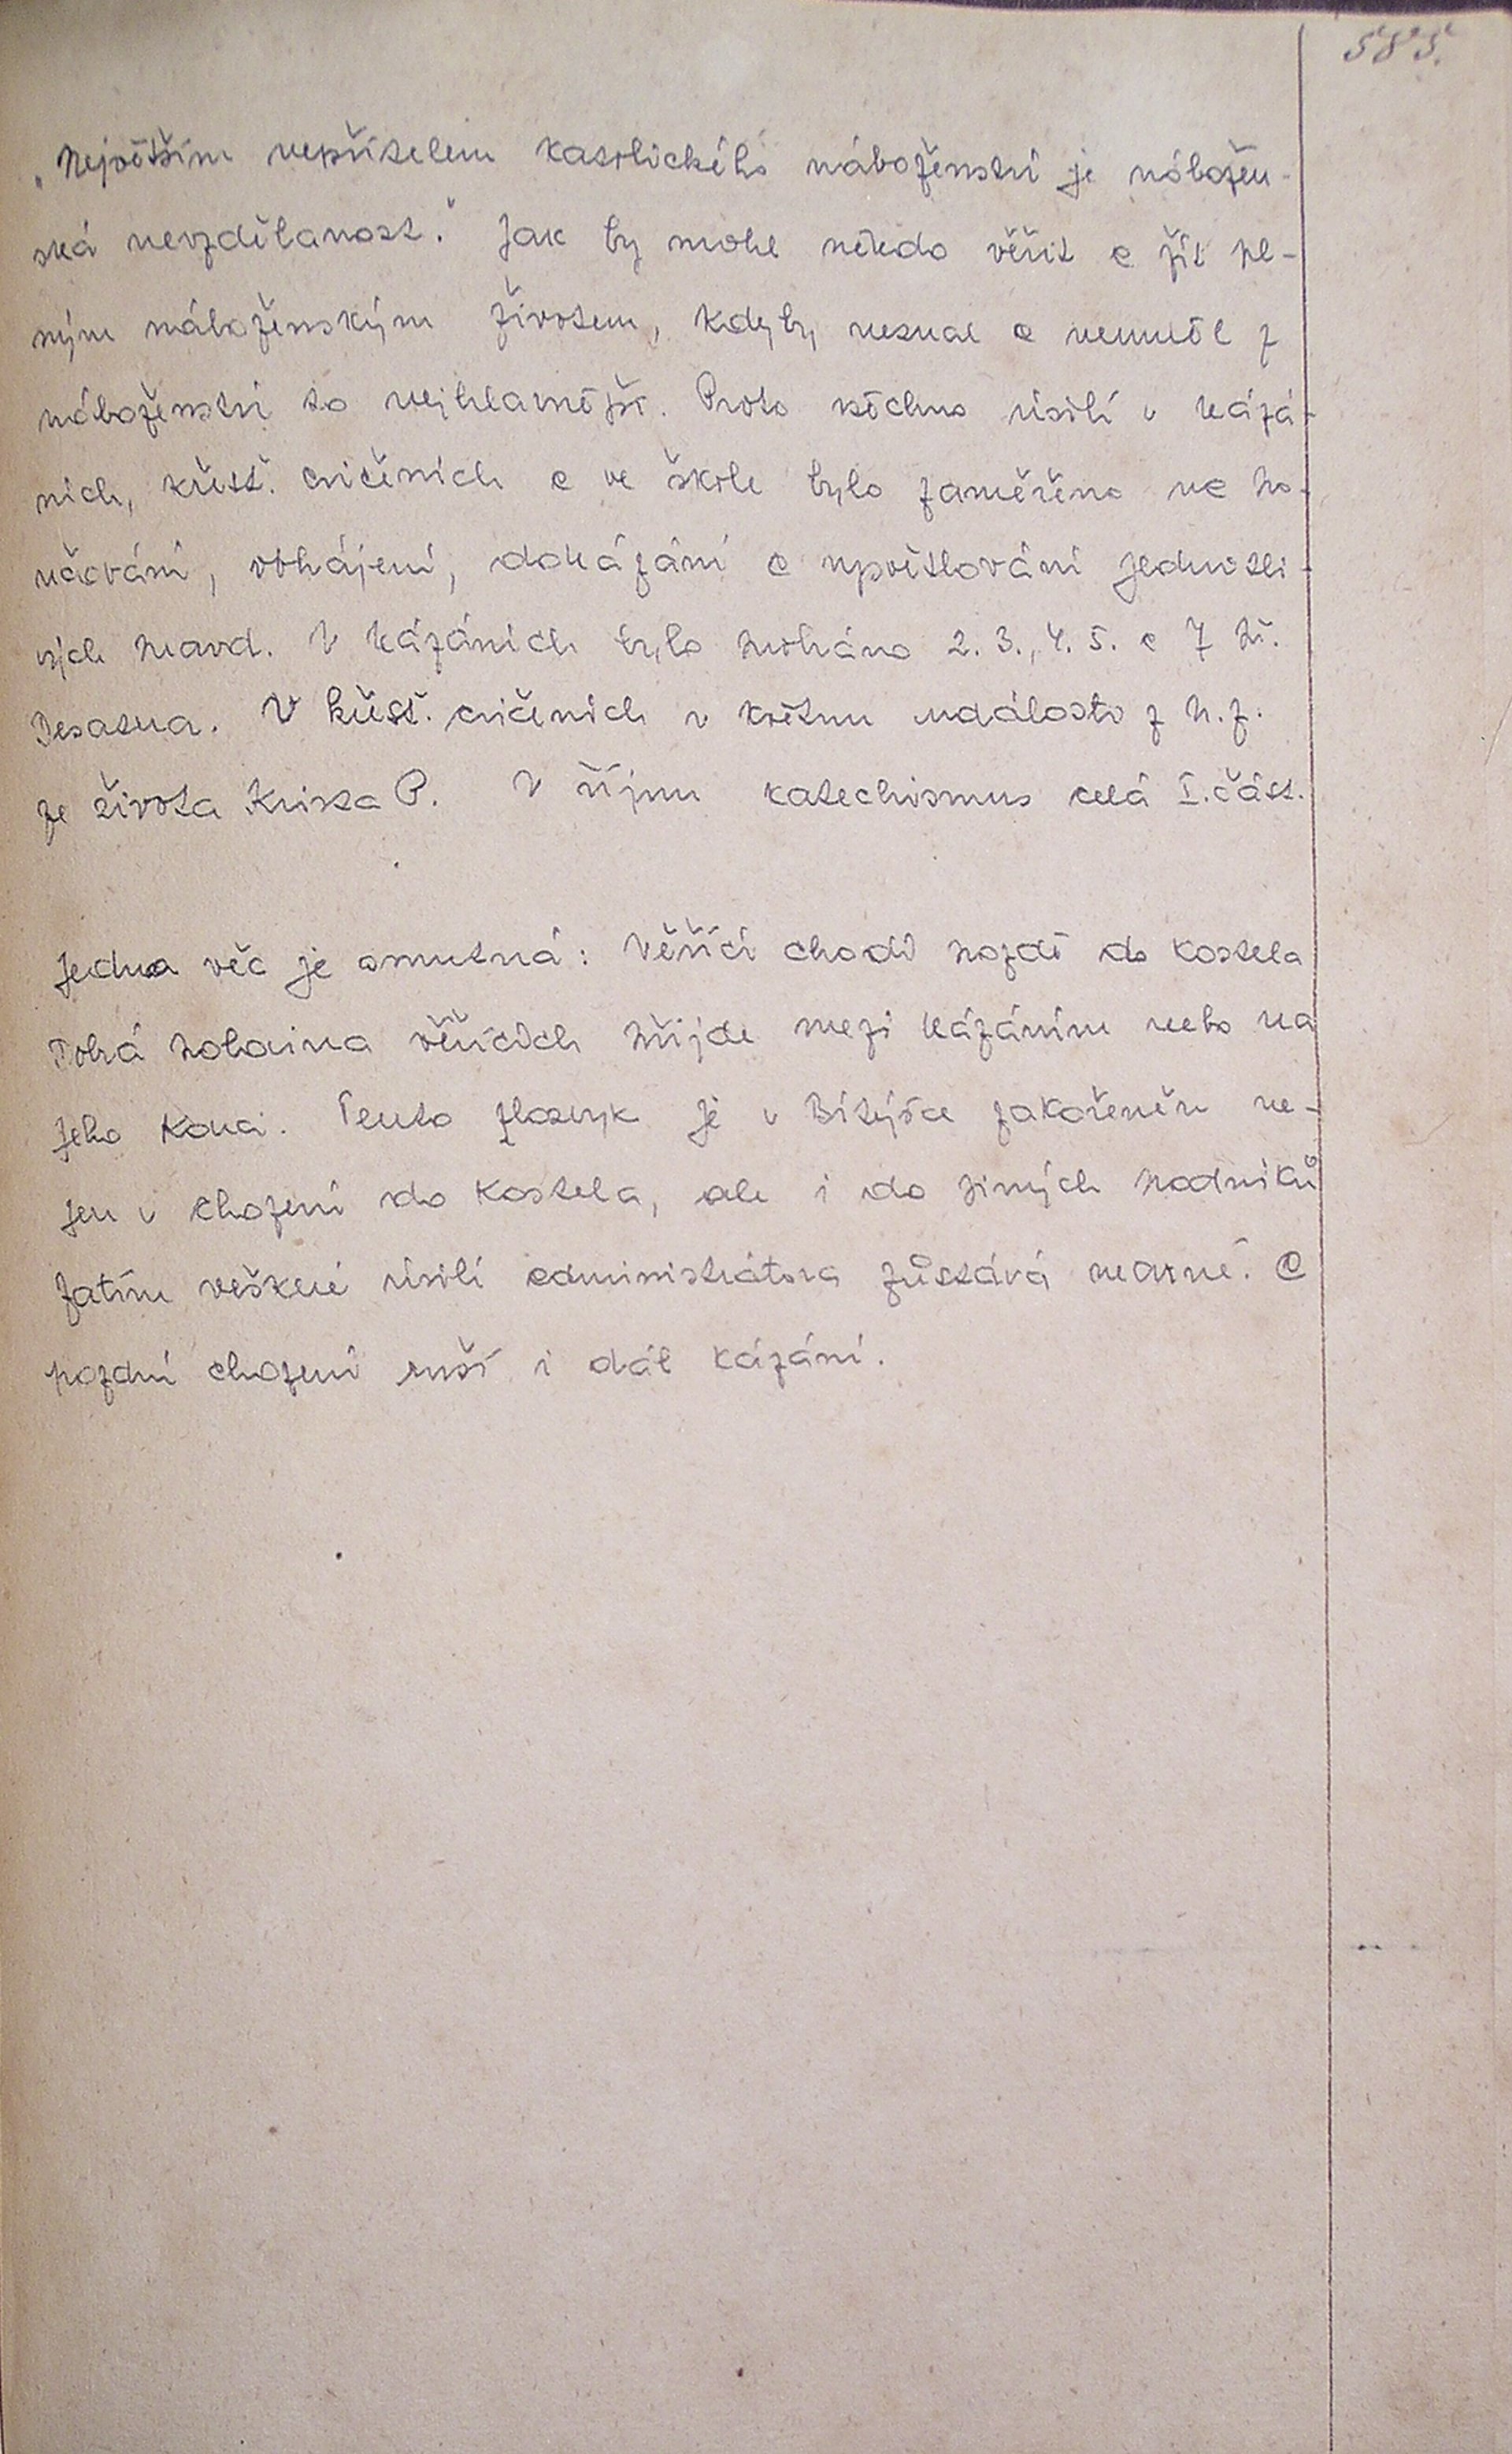 585.
„Největším nepřítelem katolického náboženství je nábožen-
ská nevzdělanost." Jak by mohl někdo věřit a žít pl-
ným náboženským životem, kdyby neznal a neuměl z
náboženství to nejhlavnější. Proto všechno úsilí v kázá-
ních, křesť. cvičeních a ve škole bylo zaměřeno na po-
učování, obhájení, dokázání a vysvětlování jednotli-
vých pravd. V kázáních bylo probráno 2. 3., 4. 5. a 7 př.
Desatera. V křesť. cvičeních v květnu události z N. z.
ze života Krista P. V říjnu katechismus celá I. část.
Jedna věc je smutná: Věřící chodí pozdě do kostela
Dobrá polovina věřících přijde mezi kázáním nebo na
jeho konci. Tento zlozvyk je v Bítýšce zakořeněn ne-
jen v chození do kostela, ale i do jiných podniků
Zatím veškeré úsilí administrátora zůstává marné. A
pozdní chození ruší i dál kázání.